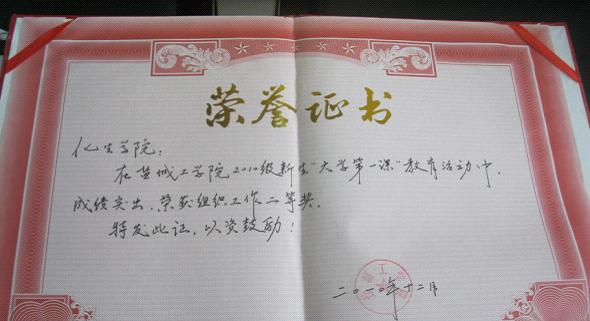 荣誉证书
化生学院：
在盐城工学院2010级新生“大学第一课”教育活动中，
成绩突出，荣获组织工作二等奖。
特发此证，以资鼓励！
二〇一〇年十二月